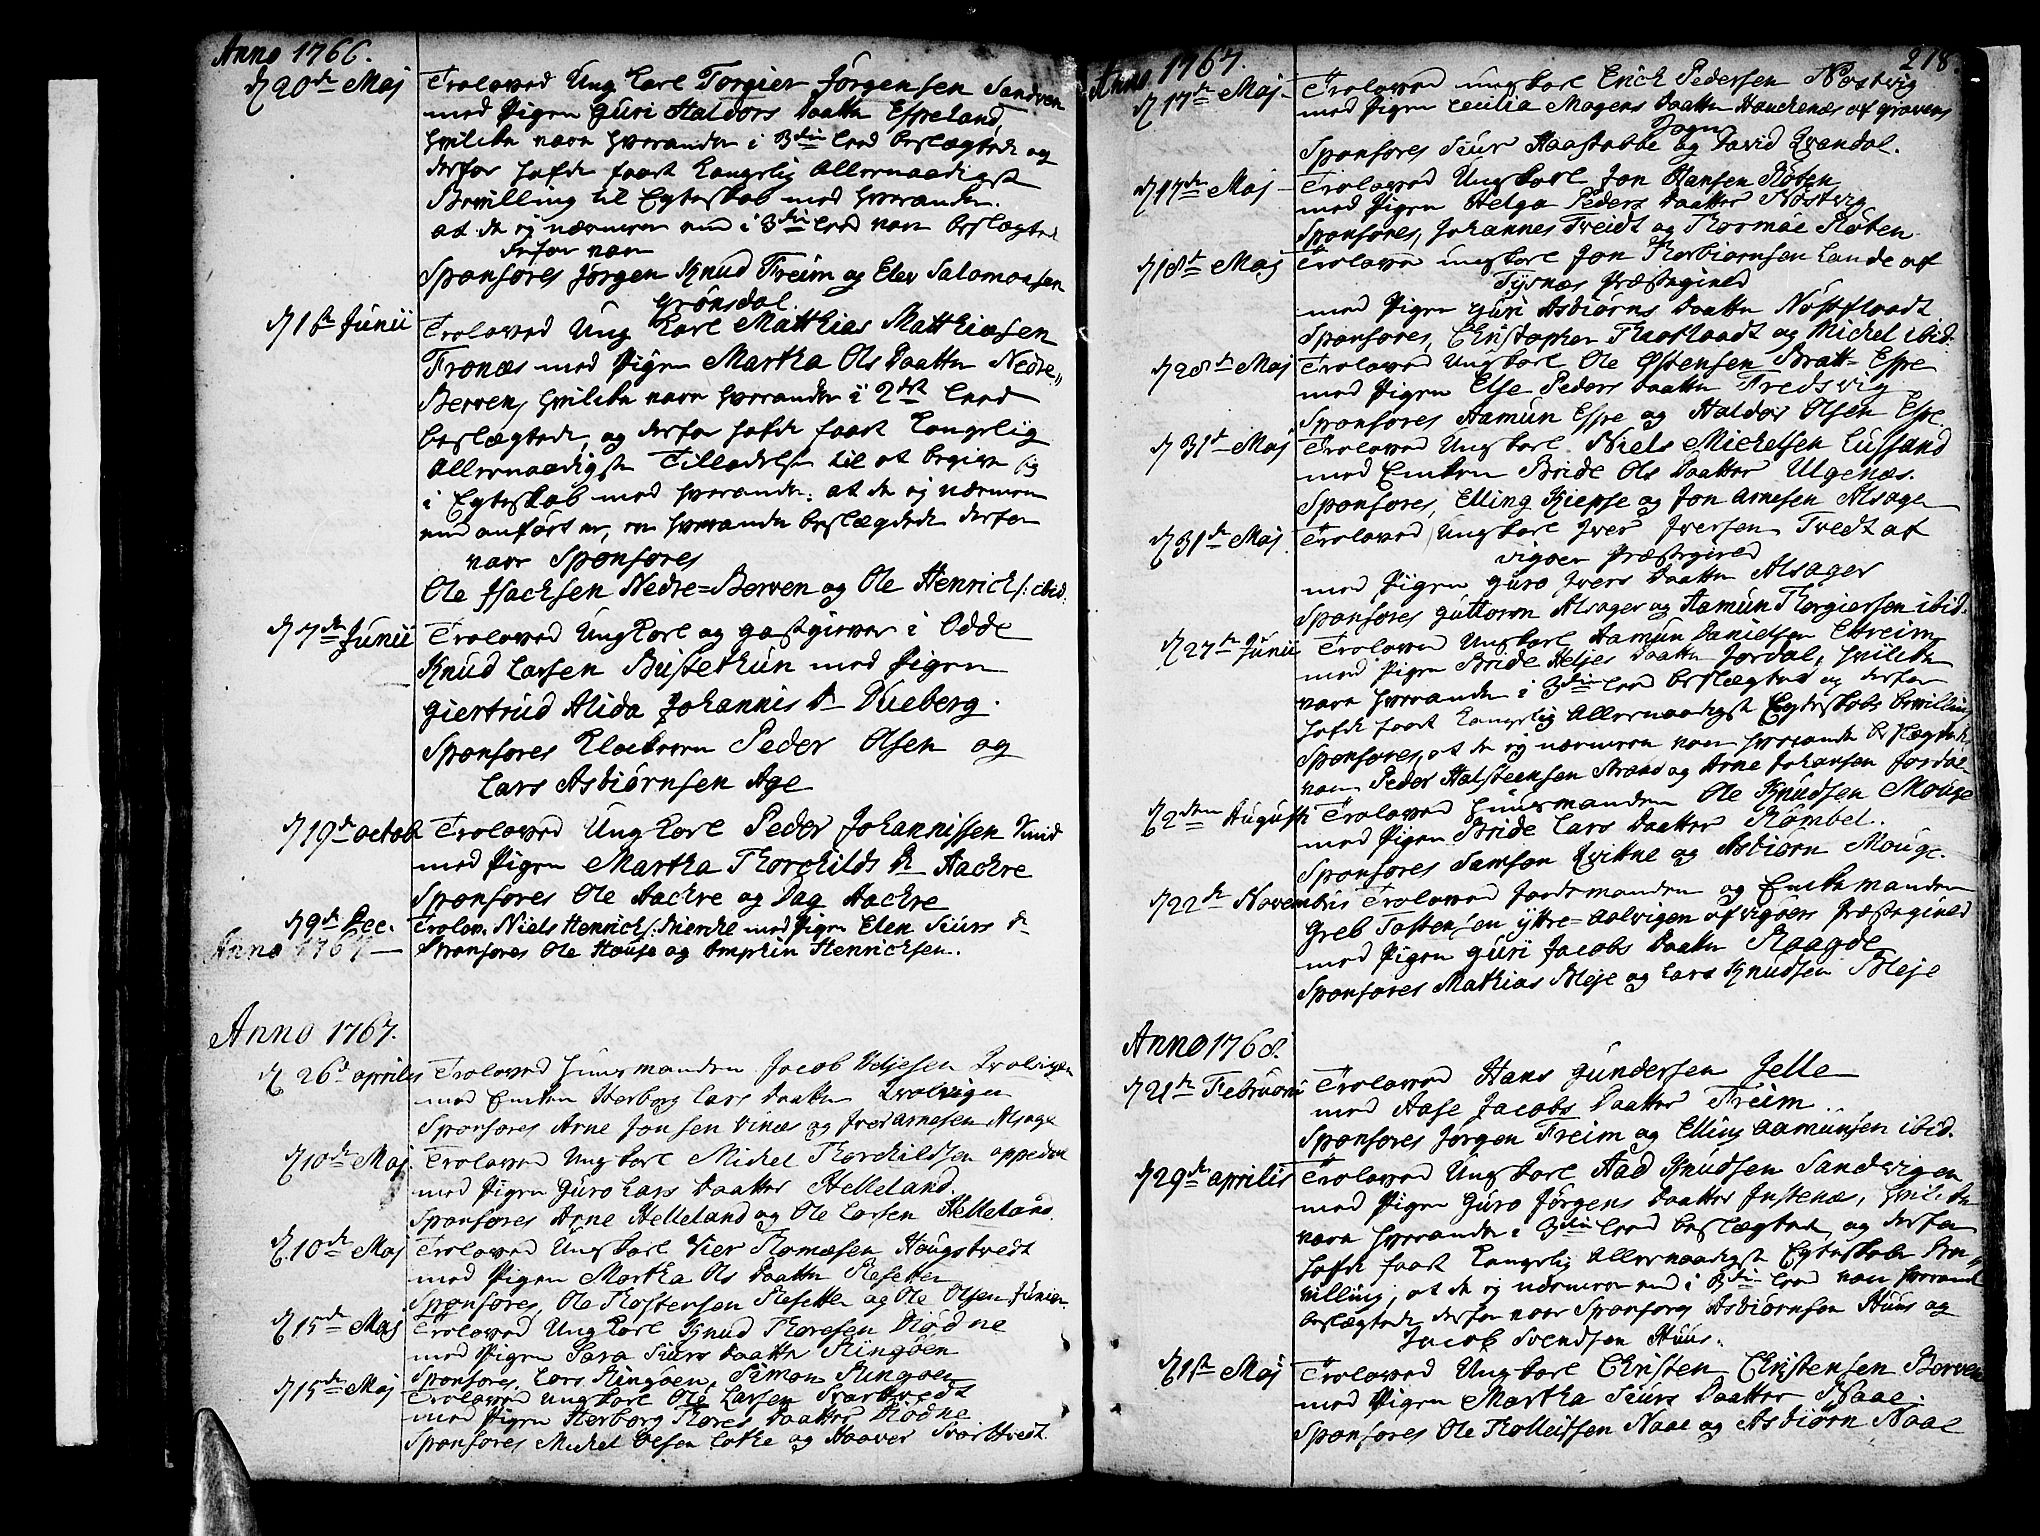 Anno 1766.
d 20de Maj Troloved Ung Karl Torgier Jörgensen Sandven
med Pigen Guri Haldors Daatter Espeland
hvilcke vare hverandre i 3die Leed beslægtede og
derfor hafde faaet Kongelig Allernaadigst
Bevilling til Egteskab med hverandre.
at de ej nærmere end i 3die Leed vare beslægted
derfor vare
Sponsores Jörgen Knud Freim og Elev Salomonsen
Grönsdal.
d 1ste Junii Troloved Ung Karl Matthies Matthiesen
Tronæs med Pigen Martha Ols Daatter Nedre,,
Berven, hvilcke vare hverandre i 2det Leed
beslægtede, og derfor hafde faaet Kongelig
Allernaadigste Tilladelse til at begive sig
i Egteskab med hverandre: at de ej nærmere
end anfört er, ere hverandre beslægtede derfor
vare Sponsores
Ole Isachsen Nedre=Berven og Ole Henrichs: ibid:
d 7de Junii Troloved Ung Karl og gastgiever i Odde
Knud Larsen Bustethun med Pigen
Giertrud Alida Johannis D Dueberg.
Sponsores Klockeren Peder Olsen og
Lars Asbiörnsen Age
d 19de octob Troloved Ung Karl Peder Johannissen
med Pigen Martha Thorchilds D Aachre
Sponsores Ole Aachre og Dag Aachre
d 9de Dec. Trolov. Niels Henrichs: med Pigen Elen Siurs D
Anno 1767— Sponsores Ole House og Omphin Henrichsen.
Anno 1767.
d 26de aprilis Troloved Huusmanden Jacob Heljesen
med Encken Herborg Lars Daatter
Sponsores Arne Jonsen Vinæs og Iver Arnesen Alsage
d 10de Maj Troloved Ungkarl Michel Thorchildsen oppedal
med Pigen Guro Lars Daatter Helleland
Sponsores Arne Helleland og Ole Larsen Helleland
d 10de Maj Trolovad Ungkarl Vier Thomæsen Hougstvedt
med Pigen Martha Ols Daatter
Sponsores, Ole Thostensen og Ole Olsen
d 15de Maj Trolovad Ung Karl Knud Thoresen Diödne
med Pigen Sara Siurs Daatter Ringöen
Sponsores, Lars Ringöen, Simon Ringöen
d 15de Maj Trolovad Ungkarl Ole Larsen Svartvedt
med Pigen Herborg Thores Daatter Diödne
Sponsores Michel Olsen Lothe og Haaver Svartvedt.
Anno 1767. 218.
d 17de Maj. Trolovad ungkarl Erich Pedersen Nöstvig
med Pigen Cecilia Magens Daatter Hauckenæs af Gravens
Sogn
Sponsores Siur Haastabbe og David Qvandal.
d 17de Maj Trolovad Ungkarl Jon Hansen Röten
med Pigen Helga Peders Daatter Nöstvig
Sponsores, Johannes Treidt og Thormöe Röten
d 18de Maj Trolovad ungkarl Jon Thorbiornsen Lande af
Tysnæs Præstegield
med Pigen Guri Asbiörns Daatter Nöstflaadt
Sponsores, Christopher og Michel ibid:
d 28de Maj Trolovad Ungkarl Ole Ostensen Bratt=Espe
med Pigen Else Peders Daatter Fredsvig
Sponsores Aamun Espe og Haldor Olsen Espe
d 31de Maj Trolovad Ungkarl Niels Michelsen Lussand
med Encken Bride Ols Daatter Ulgenæs.
Sponsores, Elling Kiepse og Jon Arnesen Alsage
d 31de Maj Trolovad Ungkarl Iver Iversen Tvedt af
vigöer Præstegield
med Pigen guro Ivers Daatter Alsager
Sponsores Guttorm Alsager og Aamun Thorgiersen ibid.
d 27de Junii Trolovad Ungkarl Aamun Danielsen Eitreim
med Pigen Bride Heljes Daatter Jordal, hvilcke
vare hverandre i 3die Leed beslægted og derfor
hafde faaet Kongelig Allernaadigst Egteskabs bevilling
Sponsores, at de ej nærmere vare hverandre beslægtede
vare Peder Halsteensen Straad og Arne Johansen Jordal
d 2den Augusti Trolovad Huusmanden Ole Knudsen Mouge
med Pigen Bride Lars Daatter Römbel.
Sponsores Samson Qvitne og Asbiörn Mouge.
d 22de Novembris Trolovad Jordemanden og Enckemanden
Greb Tostensen yttre=aalvigen af vigöers Præstegield
med Pigen Guri Jacobs Daatter Raagde
Sponsores Mathias Bleje og Lars Knudsen Bleje
Anno 1768.
d 21de Februarii Trolovad Hans Gundersen Jelle
med Aase Jacobs Daatter Freim
Sponsores Jörgen Freim og Elling Aamunsen ibid.
d 29de aprilis Trolovad Ungkarl Aad Knudsen Sandvigen
med Pigen Guro Jörgens Daatter Instenæs, hvilcke
vare hverandre i 3die Leed beslægted, og derfor
hafde faaet Kongelig Allernaadigst Egteskabs Be,,
villing, at de ej nærmere end i 3die Leed vare hverand
beslægtede, derfor vare Sponsores Asbiörnsen Huus og
Jacob Svendsen Huus.
d 1ste Maj Trolovad Ungkarl Christen Christensen Berven
med Pigen Martha Siurs Daatter Naae.
Sponsores Ole Tholleifsen Naae og Asbiörn Naae